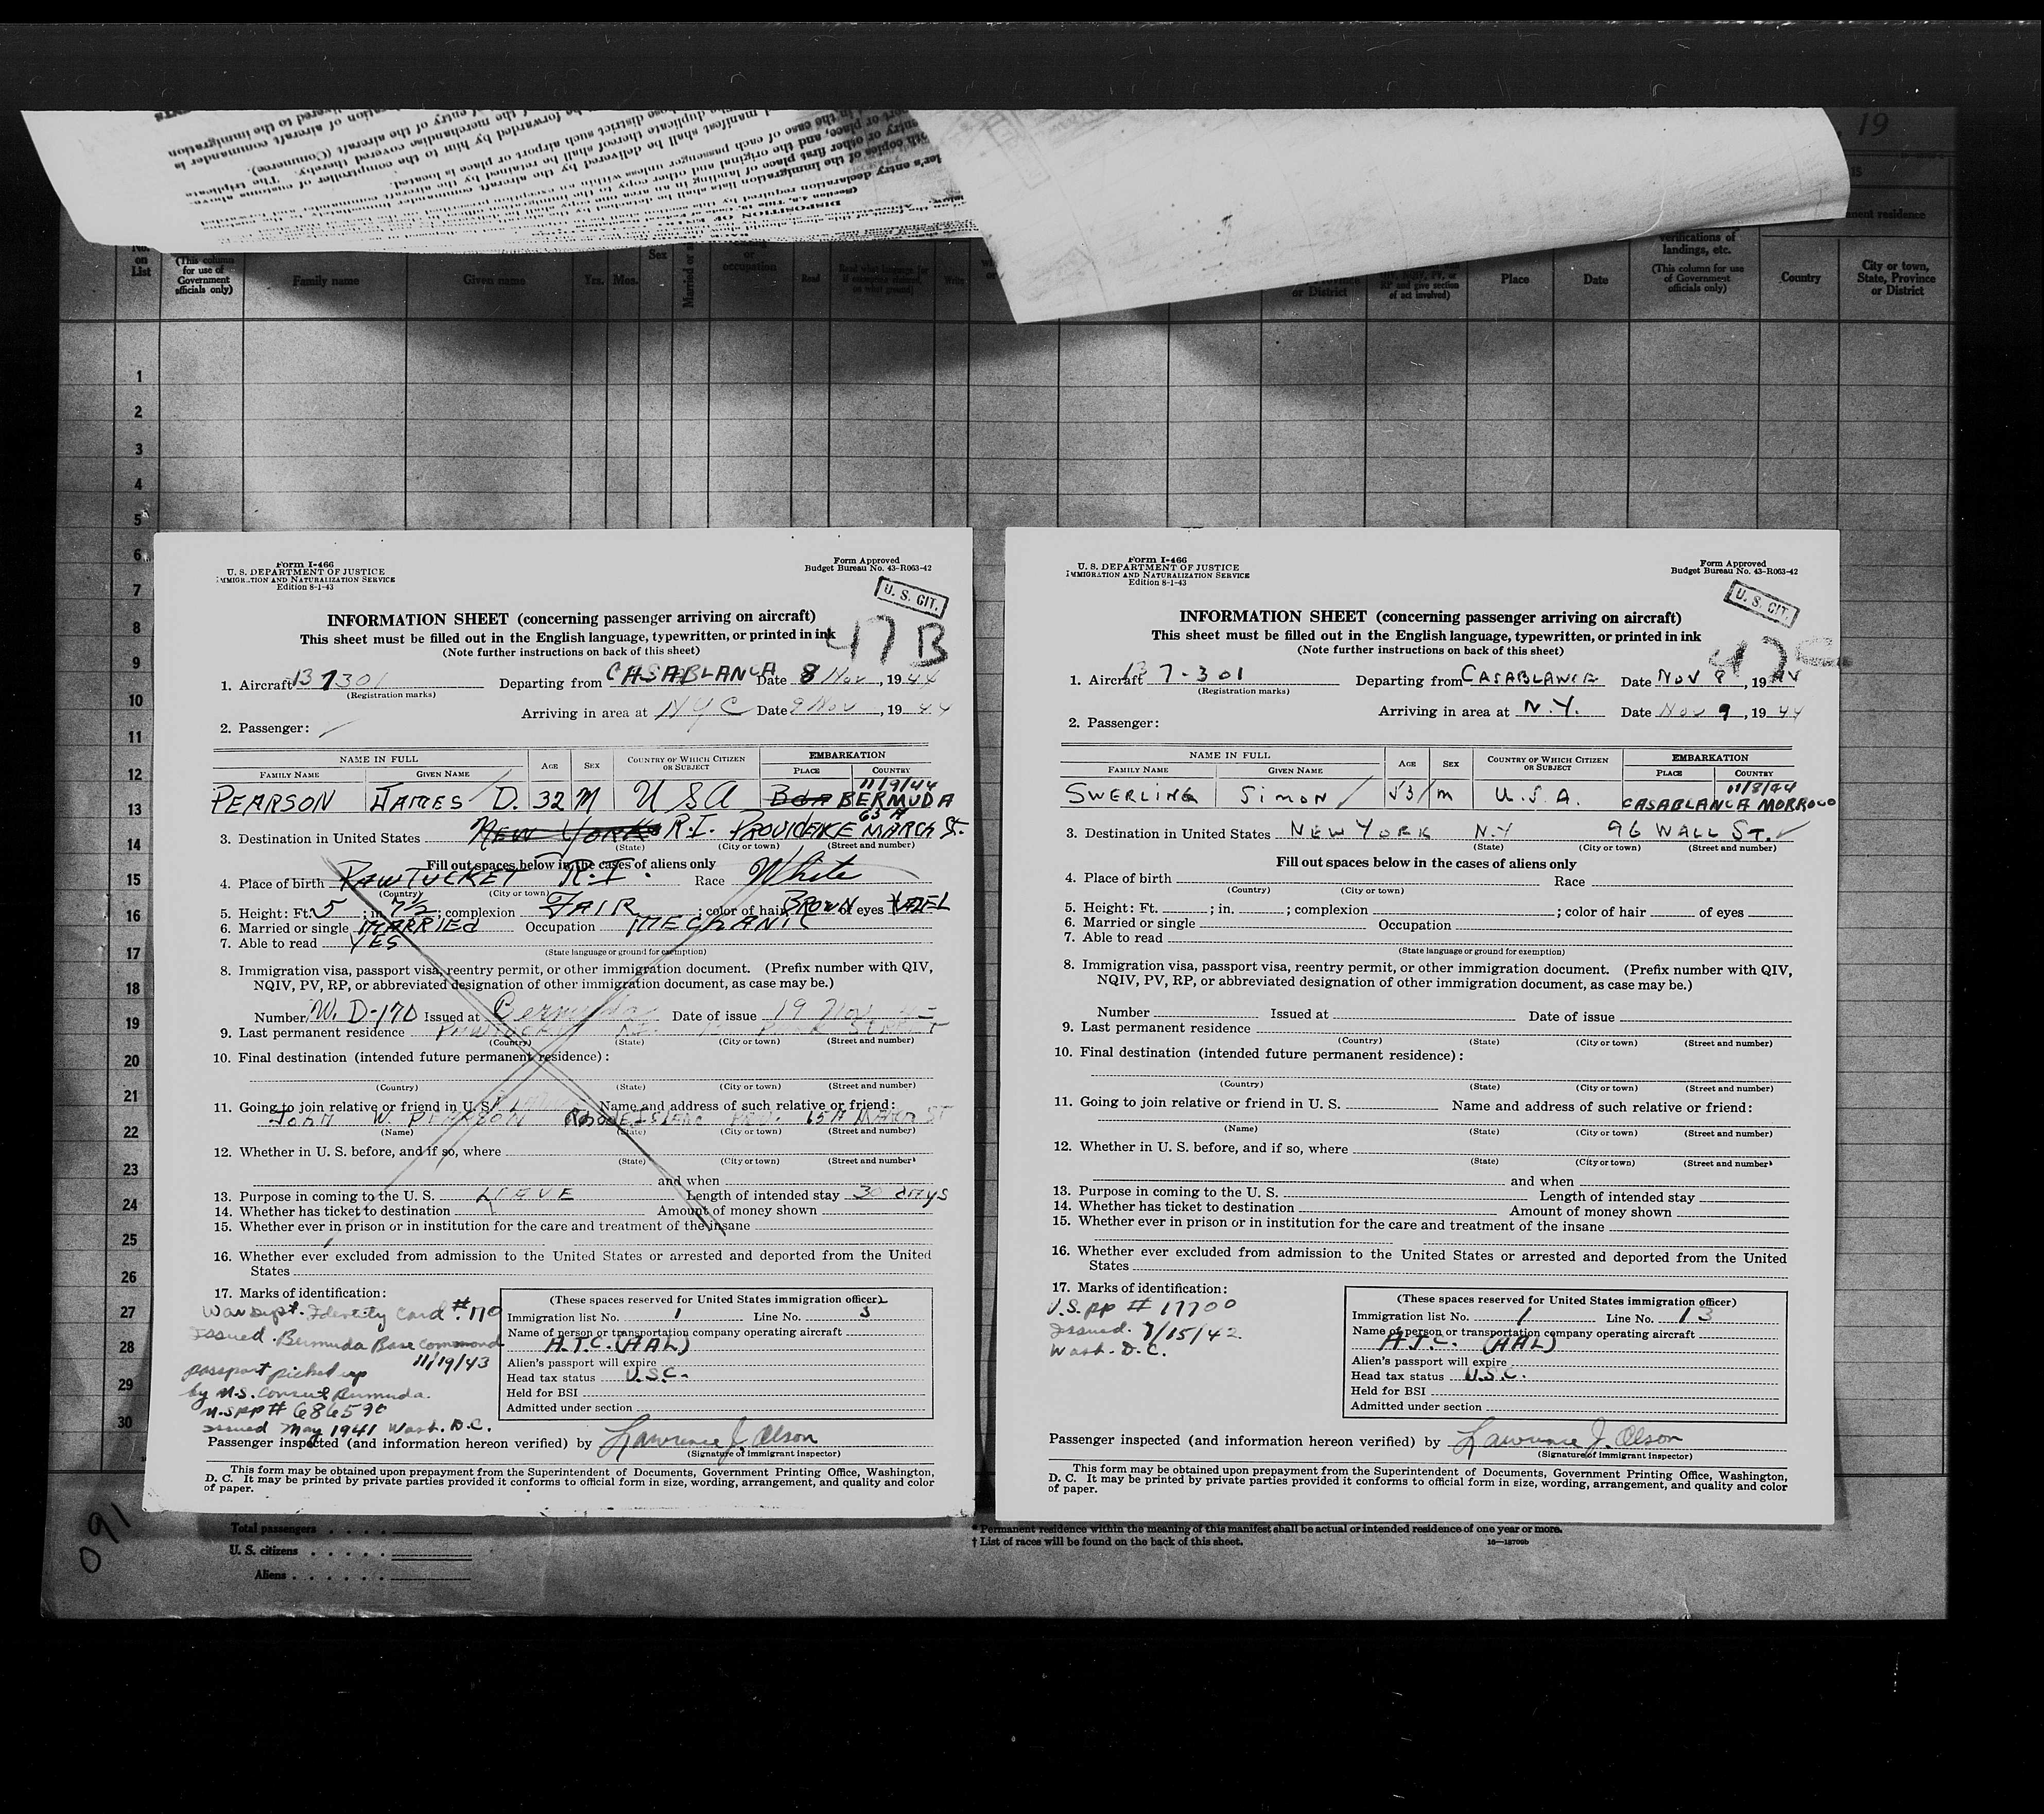 19
No. on List
(This column for use of Government officials only)
Family name
Given name
Yrs. Mos.
Sex
Married or
occupation
Read
Read what language [or if exemption claimed, on what ground]
Write
or District
RP and give section of act involved)
Place
Date
verifications of landings, etc.
(This column for use of Government officials only)
Country
City or town, State, Province or District
1
2
3
4
5
6
7
8
9
10
11
12
13
14
15
16
17
18
19
20
21
22
23
24
25
26
27
28
29
30
Form I-466
U. S. DEPARTMENT OF JUSTICE
IMMIGRATION AND NATURALIZATION SERVICE
Edition 8-1-43
Form Approved
Budget Bureau No. 43-R063-42
U. S. CIT.
INFORMATION SHEET (concerning passenger arriving on aircraft)
This sheet must be filled out in the English language, typewritten, or printed in ink
47B
(Note further instructions on back of this sheet)
1. Aircraft 137301 Departing from CASABLANCA Date 8 Nov, 1944
(Registration marks)
Arriving in area at NYC Date 9 Nov, 1944
2. Passenger:
NAME IN FULL AGE SEX COUNTRY OF WHICH CITIZEN OR SUBJECT EMBARKATION
FAMILY NAME GIVEN NAME PLACE COUNTRY
11/9/44
PEARSON JAMES D. 32 M USA BDA BERMUDA
3. Destination in United States NEW YORK R.I. PROVIDENCE 65 A MARCH ST.
(State) (City or town) (Street and number)
Fill out spaces below in the cases of aliens only
4. Place of birth PAWTUCKET R.I. Race White
(Country) (City or town)
5. Height: Ft. 5; in. 7½; complexion FAIR; color of hair BROWN of eyes HAZEL
6. Married or single MARRIED Occupation MECHANIC
7. Able to read YES
(State language or ground for exemption)
8. Immigration visa, passport visa, reentry permit, or other immigration document. (Prefix number with QIV,
NQIV, PV, RP, or abbreviated designation of other immigration document, as case may be.)
Number W. D-170 Issued at Bermuda Date of issue 19 Nov
9. Last permanent residence PAWTUCKET STREET
(Country) (State) (City or town) (Street and number)
10. Final destination (intended future permanent residence):
(Country) (State) (City or town) (Street and number)
11. Going to join relative or friend in U. S. Name and address of such relative or friend:
JOHN W. PEARSON RHODE ISLAND PROV. 65A MARCH ST
(Name) (State) (City or town) (Street and number)
12. Whether in U. S. before, and if so, where
(State) (City or town) (Street and number)
and when
13. Purpose in coming to the U. S. LEAVE Length of intended stay 30 days
14. Whether has ticket to destination Amount of money shown
15. Whether ever in prison or in institution for the care and treatment of the insane
16. Whether ever excluded from admission to the United States or arrested and deported from the United
States
17. Marks of identification:
War Dept. Identity Card #170
Issued Bermuda Base Command
11/19/43
passport picked up
by U.S. Consul Bermuda.
U.S. PP # 686590
Issued May 1941 Wash. D.C.
(These spaces reserved for United States immigration officer)
Immigration list No. 1 Line No. 3
Name of person or transportation company operating aircraft
A.T.C. (AAL)
Alien's passport will expire
Head tax status U.S.C.
Held for BSI
Admitted under section
Passenger inspected (and information hereon verified) by Lawrence J. Olson
(Signature of immigrant inspector)
This form may be obtained upon prepayment from the Superintendent of Documents, Government Printing Office, Washington,
D. C. It may be printed by private parties provided it conforms to official form in size, wording, arrangement, and quality and color
of paper.
Form I-466
U. S. DEPARTMENT OF JUSTICE
IMMIGRATION AND NATURALIZATION SERVICE
Edition 8-1-43
Form Approved
Budget Bureau No. 43-R063-42
U. S. CIT.
INFORMATION SHEET (concerning passenger arriving on aircraft)
This sheet must be filled out in the English language, typewritten, or printed in ink
47C
(Note further instructions on back of this sheet)
1. Aircraft 137-301 Departing from CASABLANCA Date NOV 8, 1944
(Registration marks)
Arriving in area at N.Y. Date Nov 9, 1944
2. Passenger:
NAME IN FULL AGE SEX COUNTRY OF WHICH CITIZEN OR SUBJECT EMBARKATION
FAMILY NAME GIVEN NAME PLACE COUNTRY
11/8/44
SWERLING SIMON 53 M U.S.A. CASABLANCA MORROCO
3. Destination in United States NEW YORK N.Y 96 WALL ST.
(State) (City or town) (Street and number)
Fill out spaces below in the cases of aliens only
4. Place of birth Race
(Country) (City or town)
5. Height: Ft. ; in. ; complexion ; color of hair of eyes
6. Married or single Occupation
7. Able to read
(State language or ground for exemption)
8. Immigration visa, passport visa, reentry permit, or other immigration document. (Prefix number with QIV,
NQIV, PV, RP, or abbreviated designation of other immigration document, as case may be.)
Number Issued at Date of issue
9. Last permanent residence
(Country) (State) (City or town) (Street and number)
10. Final destination (intended future permanent residence):
(Country) (State) (City or town) (Street and number)
11. Going to join relative or friend in U. S. Name and address of such relative or friend:
(Name) (State) (City or town) (Street and number)
12. Whether in U. S. before, and if so, where
(State) (City or town) (Street and number)
and when
13. Purpose in coming to the U. S. Length of intended stay
14. Whether has ticket to destination Amount of money shown
15. Whether ever in prison or in institution for the care and treatment of the insane
16. Whether ever excluded from admission to the United States or arrested and deported from the United
States
17. Marks of identification:
U.S. PP # 17700
Issued 7/15/42
Wash. D.C.
(These spaces reserved for United States immigration officer)
Immigration list No. 1 Line No. 13
Name of person or transportation company operating aircraft
A.T.C. (AAL)
Alien's passport will expire
Head tax status U.S.C.
Held for BSI
Admitted under section
Passenger inspected (and information hereon verified) by Lawrence J. Olson
(Signature of immigrant inspector)
This form may be obtained upon prepayment from the Superintendent of Documents, Government Printing Office, Washington,
D. C. It may be printed by private parties provided it conforms to official form in size, wording, arrangement, and quality and color
of paper.
160
Total passengers
U. S. citizens
Aliens
* Permanent residence within the meaning of this manifest shall be actual or intended residence of one year or more.
† List of races will be found on the back of this sheet.
16—18709b